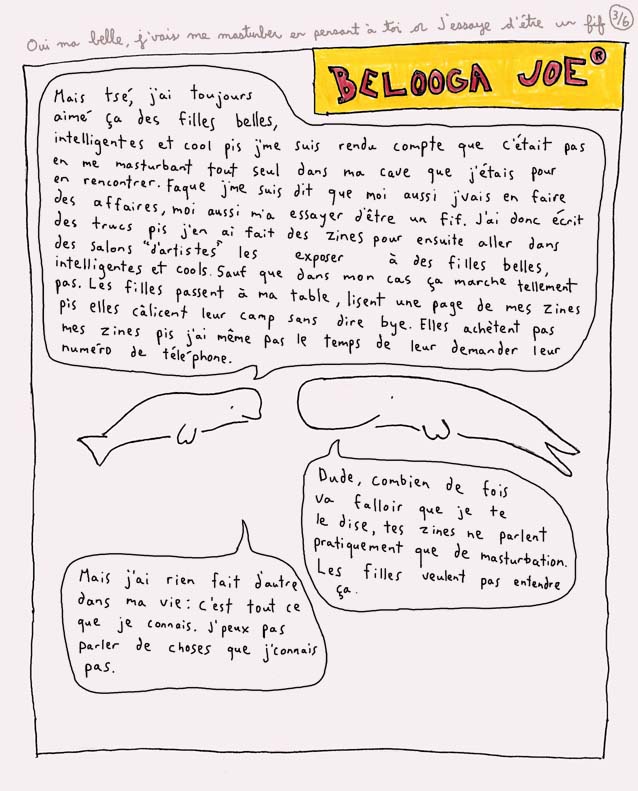 Oui ma belle, j'vais me masturber en pensant à toi or j'essaye d'être un fif
3/6
BELOOGA JOE®
Mais tsé, j'ai toujours
aimé ça des filles belles,
intelligentes et cool pis j'me suis rendu compte que c'était pas
en me masturbant tout seul dans ma cave que j'étais pour
en rencontrer. Faque j'me suis dit que moi aussi j'vais en faire
des affaires, moi aussi m'a essayer d'être un fif. J'ai donc écrit
des trucs pis j'en ai fait des zines pour ensuite aller dans
des salons "d'artistes" les exposer à des filles belles,
intelligentes et cools. Sauf que dans mon cas ça marche tellement
pas. Les filles passent à ma table, lisent une page de mes zines
pis elles câlicent leur camp sans dire bye. Elles achètent pas
mes zines pis j'ai même pas le temps de leur demander leur
numéro de téléphone.
Dude, combien de fois
va falloir que je te
le dise, tes zines ne parlent
pratiquement que de masturbation.
Les filles veulent pas entendre
ça.
Mais j'ai rien fait d'autre
dans ma vie: c'est tout ce
que je connais. J'peux pas
parler de choses que j'connais
pas.